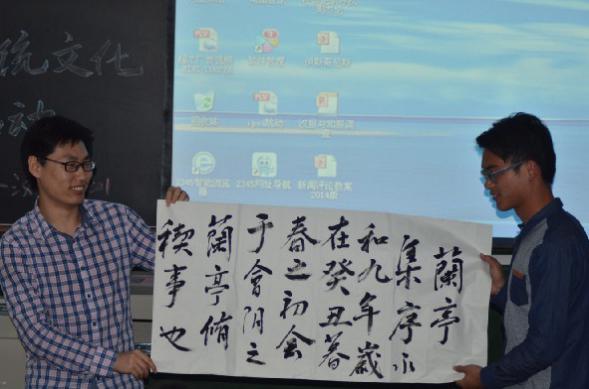 统文化
动
软件管理
回收站
2345网址导航
新闻评论教案
2014版
蘭亭
集序永
和九年歲
在癸丑暮
春之初会
于會阴之
蘭亭脩
稧事也